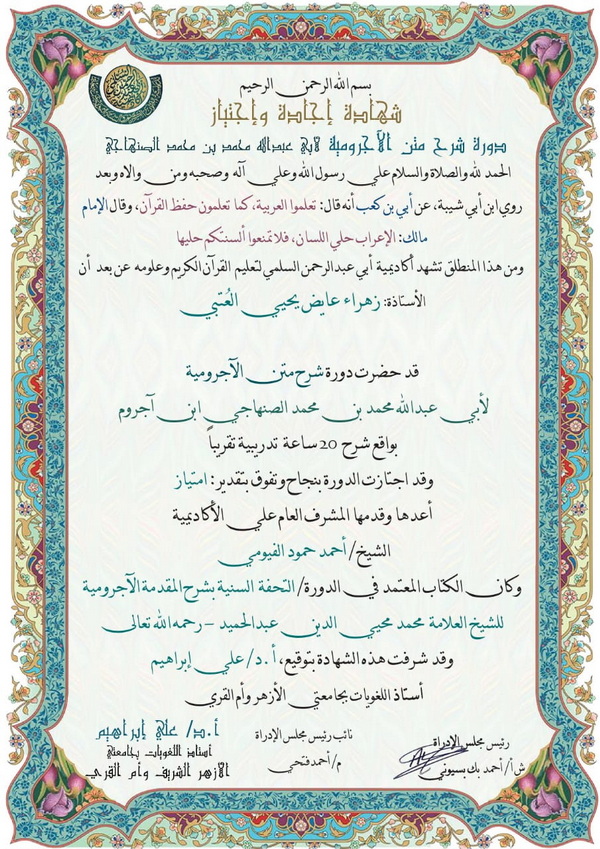 بسم الله الرحمن الرحيم
شهادة إجادة وإجتياز
دورة شرح متن الآجرومية لابي عبدالله محمد بن محمد الصنهاجي
الحمد لله والصلاة والسلام علي رسول الله وعلي آله وصحبه ومن والاه وبعد
روي ابن أبي شيبة، عن أبي بن كعب أنه قال: تعلموا العربية، كما تعلمون حفظ القرآن، وقال الإمام
مالك: الإعراب حلي اللسان، فلا تمنعوا ألسنتكم حليها
ومن هذا المنطلق تشهد أكاديمية أبي عبدالرحمن السلمي لتعليم القرآن الكريم وعلومه عن بعد أن
الأستاذة: زهراء عايض يحيي العُتبي
قد حضرت دورة شرح متن الآجرومية
لأبي عبدالله محمد بن محمد الصنهاجي ابن آجروم
بواقع شرح 20 ساعة تدريبية تقريباً
وقد اجتازت الدورة بنجاح وتفوق بتقدير: امتياز
أعدها وقدمها المشرف العام علي الأكاديمية
الشيخ/ أحمد حمود الفيومي
وكان الكتاب المعتمد في الدورة/ التحفة السنية بشرح المقدمة الآجرومية
للشيخ العلامة محمد محيي الدين عبدالحميد – رحمه الله تعالى
وقد شرفت هذه الشهادة بتوقيع، أ.د/ علي إبراهيم
أستاذ اللغويات بجامعتي الأزهر وأم القري
رئيس مجلس الإدراة
ش أ/ أحمد بك بسيوني
نائب رئيس مجلس الإدراة
م/ أحمد فتحي
أ.د/ علي إبراهيم
أستاذ اللغويات بجامعتي
الازهر الشريف وأم القري